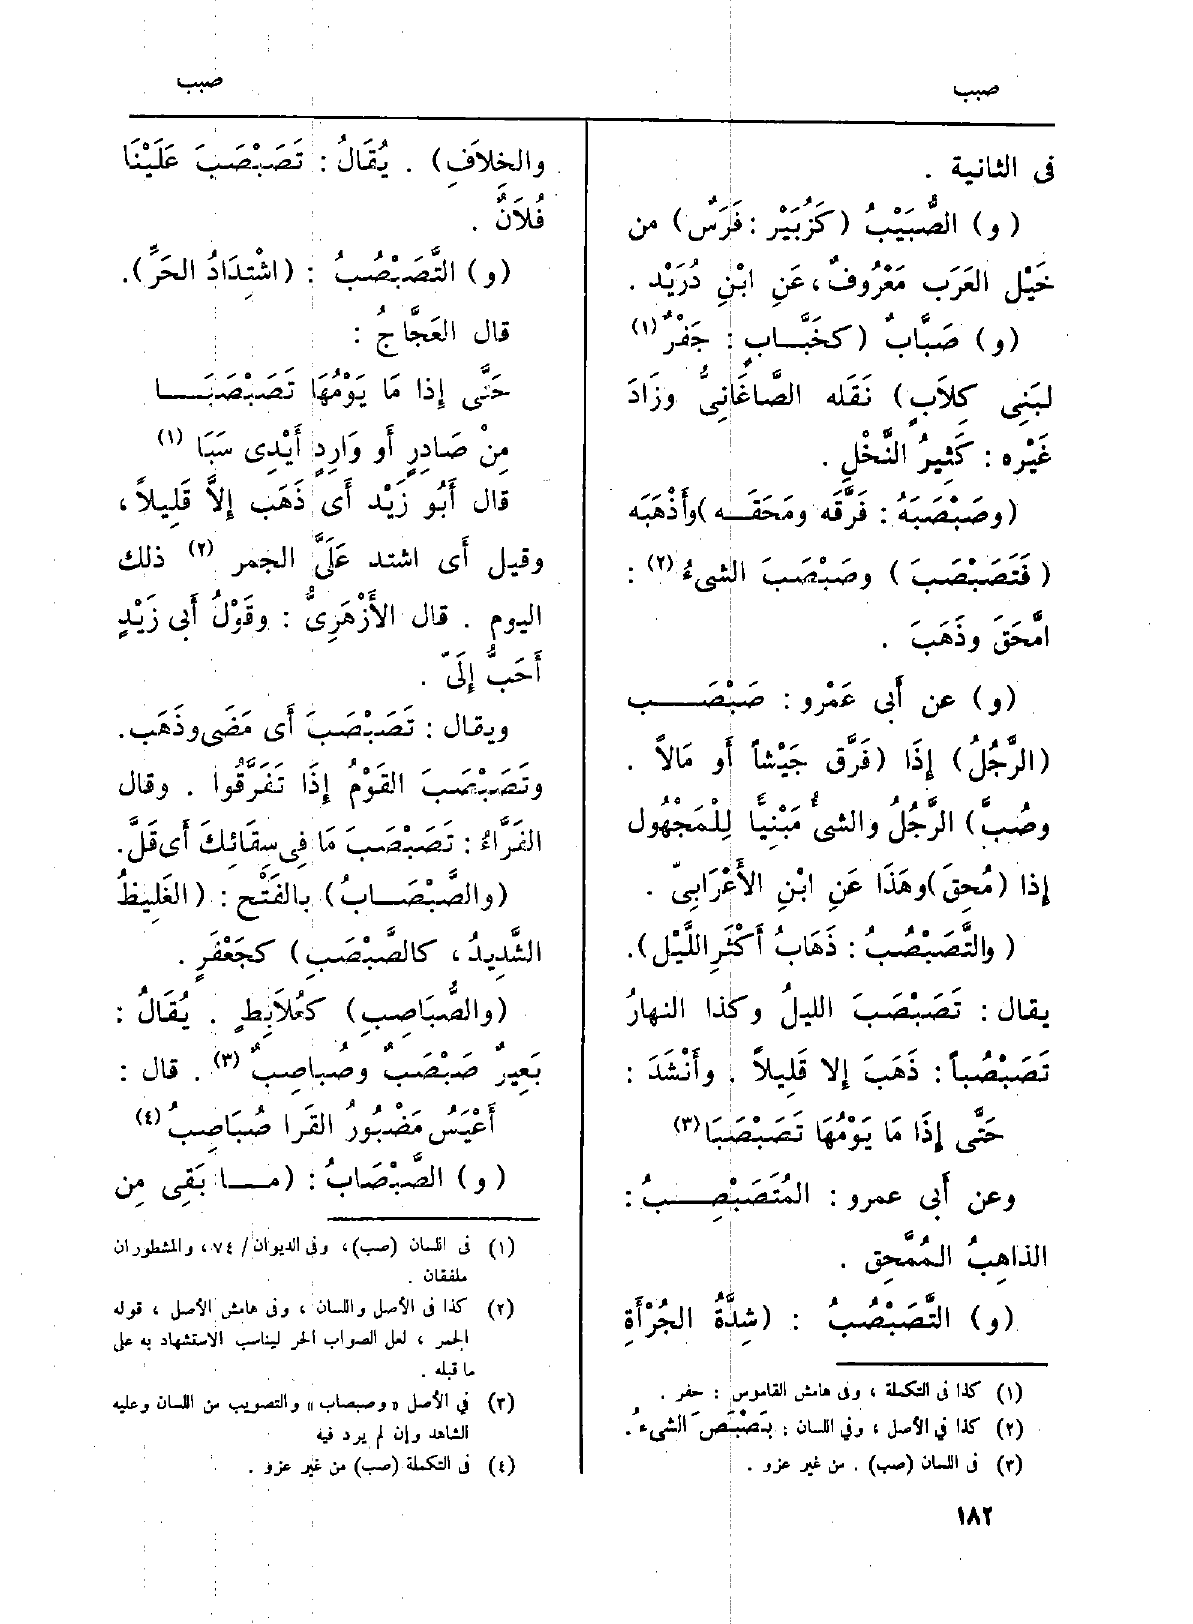 صبب
صبب
فى الثانية .
( و ) الصُّبَيْبُ ( كَزُبَيْر : فَرَسٌ ) من
خَيْل العَرَب مَعْرُوفٌ ، عَنِ ابْنِ دُرَيْد .
( و ) صَبَّابٌ ( كخَبَّــابٍ : جَفْرٌ (١)
لبَنِى كِلاَبٍ ) نَقَله الصَّاغَانِىُّ وزَادَ
غَيْره : كَثِيرُ النَّخْلِ .
( وصَبْصَبَهُ : فَرَّقَه ومَحَقَــه ) وأَذْهَبَه
( فَتَصَبْصَبَ ) وصَبْصَبَ الشىءُ (٢) :
امَّحَقَ وذَهَبَ .
( و ) عن أَبى عَمْرو : صَبْصَــــب
( الرَّجُلُ ) إِذَا ( فَرَّق جَيْشاً أَو مَالاً .
وصُبَّ ) الرَّجُلُ والشىءُ مَبْنِيًّا لِلْمَجْهُول
إذا ( مُحِقَ ) وهَذَا عَنِ ابْنِ الأَعْرَابىّ .
( والتَّصَبْصُبُ : ذَهَابُ أَكْثَرِ اللَّيْل ) .
يقال : تَصَبْصَبَ الليلُ وكذا النهارُ
تَصَبْصُباً : ذَهَبَ إلا قَلِيلاً . وأَنْشَدَ :
حَتَّى إِذَا مَا يَوْمُهَا تَصَبْصَبَا (٣)
وعن أَبى عمرو : المُتَصَبْصِــــبُ :
الذاهِبُ المُمَّحِق .
( و ) التَّصَبْصُبُ : ( شِدَّةُ الجُرْأَةِ
(١) كذا فى التكملة ، وفى هامش القاموس : حفر .
(٢) كذا في الأصل ، وفي اللسان : بَصْبَصَ الشىءُ .
(٣) فى اللسان (صب) . من غير عزو .
والخِلاَفِ ) . يُقَالُ : تَصَبْصَبَ عَلَيْنَا
فُلاَنٌ .
( و ) التَّصَبْصُبُ : ( اشْتِدَادُ الحَرِّ ) .
قال العَجَّاجُ :
حَتَّى إذا مَا يَوْمُهَا تَصَبْصَبَــــا
مِنْ صَادِرٍ أَو وَارِدٍ أَيْدِى سَبَا (١)
قال أَبُو زَيْد أَى ذَهَب إِلاَّ قَلِيلاً ،
وقيل أَى اشتد عَلَىَّ الجمر (٢) ذلك
اليوم . قال الأَزْهَرِىُّ : وقَوْلُ أَبى زَيْدٍ
أَحَبُّ إِلَىّ .
ويقال : تَصَبْصَبَ أَى مَضَى وذَهَب .
وتَصَبْصَبَ القَوْمُ إِذَا تَفَرَّقُوا . وقال
الفَرَّاءُ : تَصَبْصَبَ مَا فِى سِقَائِكَ أَى قَلَّ .
( والصَّبْصَــابُ ) بالفَتْح : ( الغَلِيظُ
الشَّدِيدُ ، كالصَّبْصَبِ ) كجَعْفَرٍ .
( والصُّبَاصِبِ ) كعُلاَبِطٍ . يُقَالُ :
بَعِيرٌ صَبْصَبٌ وصُباصِبٌ (٣) . قال :
أَعْيَسُ مَضْبُورُ القَرا صُبَاصِبُ (٤)
( و ) الصَّبْصَابُ : ( مــــا بَقِى مِن
(١) فى اللسان (صب) ، وفى الديوان / ٧٤ ، والمشطوران
ملفقان .
(٢) كذا فى الأصل واللسان ، وفى هامش الأصل ، قوله
الجمر ، لعل الصواب الحر ليناسب الاستشهاد به على
ما قبله .
(٣) في الأصل « وصبصاب » والتصويب من اللسان وعليه
الشاهد وإن لم يرد فيه
(٤) فى التكملة (صب) من غير عزو .
١٨٢